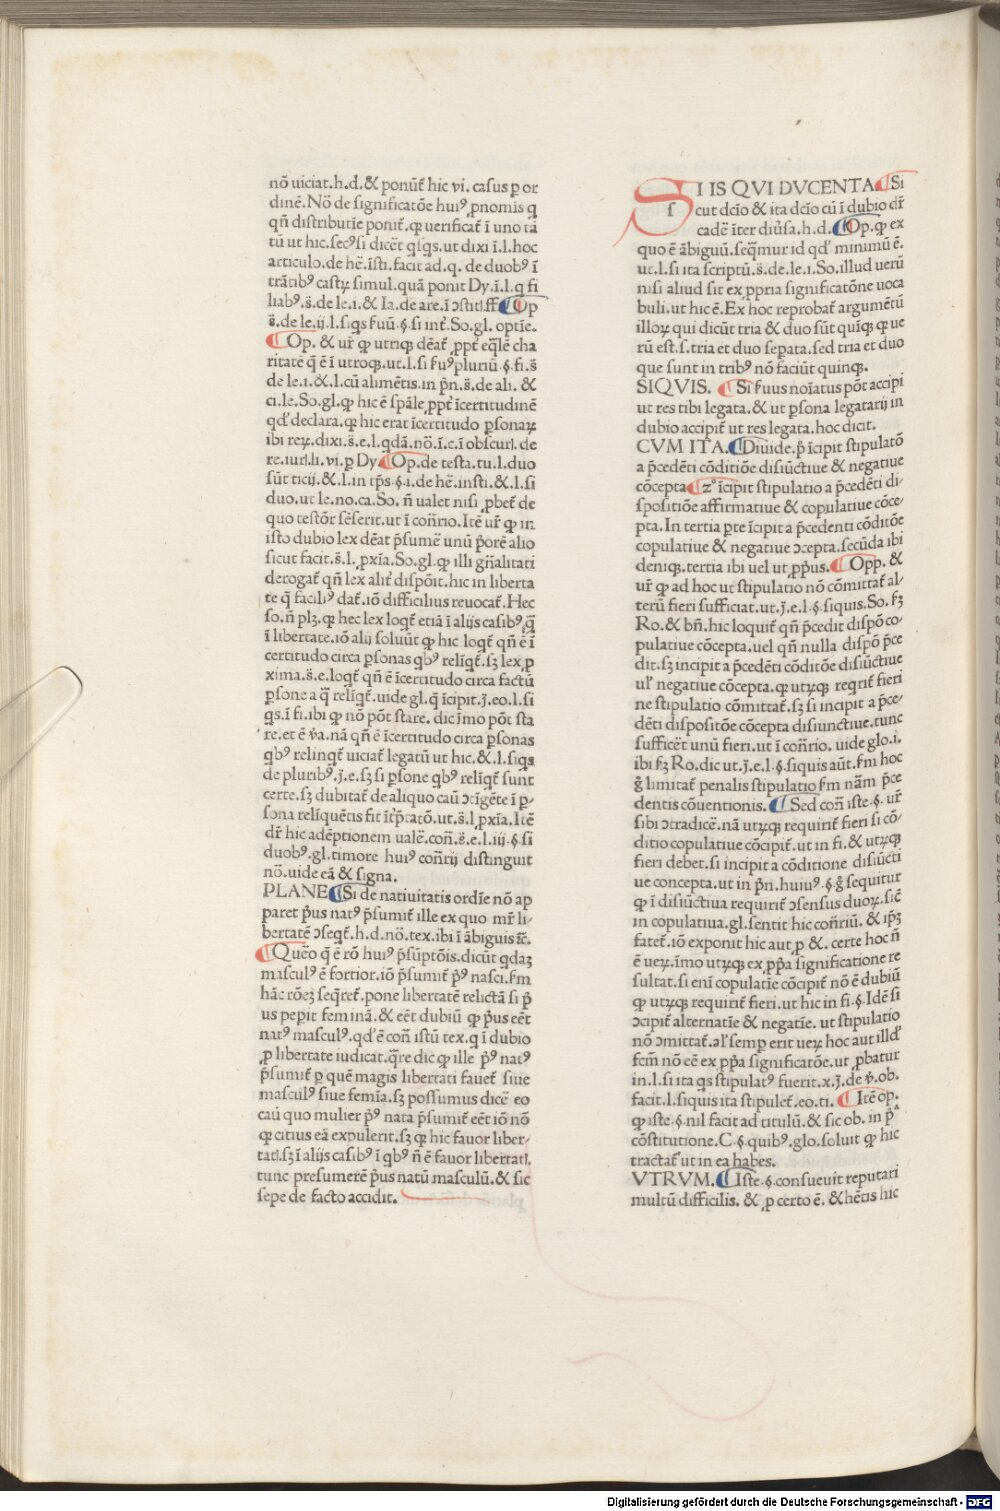 nō uiciat.h.d.& ponūt̄ hic vi. casus p or
dinē. Nō de significatōe huiꝰ ꝓnomis q
qn̄ distributīe ponit̄.ꝙ uerificat̄ ī uno tā
tū ut hic.
articulo.de hē.īsti.facit ad.q.de duobꝰ ī
simul.quā ponit Dy.ī.l.q fi
liabꝰ.s̄.de le.i.& Ia.de are.ī
s̄.de le.ij.l.si qs
Op. & ur̄ ꝙ utriqꝫ dēat̄ ꝓpt̄ eq̄lē cha
ritatē q̄ ē ī utroqꝫ.ut.l.si
de le.i.&.l.cū alimētis.in pn̄.s̄.de ali. &
ci.le.So.gl.ꝙ hic ē spāle ꝓpt̄ īcertitudinē
qd' declara.ꝙ hic erat īcertitudo ꝑsonaꝝ
ibi reꝝ.dixi.s̄.e.l.qdā.nō.ī.c.ī obscurl.de
re.iurl.li.vi.p Dy. Op.de testa.tu.l.duo
sūt
duo.ut le.no.ca.So. n̄ ualet nisi ꝓbet̄ de
quo testōr sēserit.ut ī con̄rio.Itē ur̄ ꝙ in
isto dubio lex dēat p̄sumē unū p̄orē alio
sicut facit.s̄.l.ꝓxīa.So.gl.ꝙ illi gn̄alitati
derogat̄ qn̄ lex alit̄ dispōit.hic in liberta
te q̄ faciliꝰ dat̄.iō difficilius reuocat̄.Hec
so.n̄ plꝫ.ꝙ hec lex loqt̄ etiā ī alijs casibꝰ.q̄
ī libertate.iō alij soluūt ꝙ hic loqt̄ qn̄ ē ī
certitudo circa ꝑsonas qbꝰ relīqt̄.sꝫ lex ꝓ
xima.s̄.e.loqt̄ qn̄ ē īcertitudo circa factū
ꝑsone a q̄ relīqt̄.uide gl.q īcipit.j̄.eo.l.si
qs.ī fi.ibi ꝙ nō pōt stare.dic īmo pōt sta
re.et ē v̄a.nā qn̄ ē īcertitudo circa ꝑsonas
qbꝰ relinqt̄ uiciat̄ legatū ut hic.&.l.si qs
de pluribꝰ.j̄.e.sꝫ si ꝑsone qbꝰ relīqt̄ sunt
certe.sꝫ dubitat̄ de aliquo
sona relīquētis fit īt̄p̄tatō.ut.s̄.l.ꝓxīa.Itē
dr̄ hic adēptionem ualē.con̄.s̄.e.l.iij.§.si
duobꝰ.gl.timore huiꝰ con̄rij distinguit
nō.uide eā & signa.
PLANE Si de natiuitatis ordīe nō ap
paret p̄us natꝰ p̄sumit̄ ille ex quo mr̄ li-
bertatē ↄseqt̄.h.d.nō.tex.ibi ī ābiguis
Quēo q̄ ē rō huiꝰ p̄sūptōis.dicūt qdaꝫ
masculꝰ ē fortior.iō p̄sumit̄ p̄ꝰ nasci.
hāc rōeꝫ seqret̄.pone libertatē relictā si p̄
us pepit feminā.& eēt dubiū ꝙ p̄us eēt
natꝰ masculꝰ.qd' ē con̄ istū tex.q ī dubio
ꝓ libertate iudicat.q̄re dic ꝙ ille p̄ꝰ natꝰ
p̄sumit̄ p quē magis libertati fauet̄ siue
masculꝰ siue femīa.sꝫ possumus dicē eo
caū quo mulier p̄ꝰ nata p̄sumit̄ eēt iō nō
ꝙ citius eā expulerit.sꝫ ꝙ hic fauor liber-
tatl.sꝫ ī alijs casibꝰ ī qbꝰ n̄ ē fauor libertatl.
tunc presumerē p̄us natū masculū.& sic
sepe de facto accidit.
SI IS QVI DVCENTA. Si
cut dc̄io & ita dc̄io cū ī dubio dr̄
cadē īter diu̇sa.h.d. Op.ꝙ ex
quo ē ābiguū.seq̄mur id qd' minimū ē.
ut.l.si ita scriptū.s̄.de le.i.So.illud uerū
nisi aliud sit ex ꝓpria significatōne uoca
buli.ut hic ē.Ex hoc reprobat̄ argumētū
illoꝝ qui dicūt tria & duo sūt quīqꝫ ꝙ ue
rū est.s.tria et duo separata.sed tria et duo
que sunt in tribꝰ nō faciūt quinqꝫ.
SIQVIS. Si ẜuus noīatus pōt accipi
ut res tibi legata.& ut ꝑsona legatarij in
dubio accipit̄ ut res legata.hoc dicit.
CVM ITA. Diuide.p̄ īcipit stipulatō
a p̄cedēti cōditiōe disiūctiue & negatiue
cōcepta. zꝰ īcipit stipulatio a p̄cedēti di-
spositiōe affirmatiue & copulatiue cōce-
pta.In tertia ꝑte īcipit a p̄cedenti cōditōe
copulatiue & negatiue ↄcepta.secūda ibi
deniqꝫ.tertia ibi uel ut ꝓp̄us. Opp. &
ur̄ ꝙ ad hoc ut stipulatio nō cōmittat̄ al-
terū fieri sufficiat.ut.j̄.e.l.§.siquis.So.
Ro.& bn̄.hic loquit̄ qn̄ p̄cedit dispō co-
pulatiue cōcepta.uel qn̄ nulla dispō p̄ce
dit.sꝫ incipit a p̄cedēti cōditōe disiūctiue
ul' negatiue cōcepta.ꝙ utꝝqꝫ reqrit̄ fieri
ne stipulatio cōmittat̄.sꝫ si incipit a p̄ce-
dēti dispositōe cōcepta disiunctiue.tunc
sufficēt unū fieri.ut ī con̄rio.uide glo.i.
ibi Ro.dic ut.j̄.e.l.§.siquis aūt. hoc
limitat̄ penalis stipulatio nām p̄ce
dentis cōuentionis. Sed con̄ iste.§.ur̄
sibi ↄtradicē.nā utꝝqꝫ requirit̄ fieri si cō-
ditio copulatiue cōcipit̄.ut in fi.& utꝝqꝫ
fieri debet.si incipit a cōditione disiūcti
ue concepta.ut in pn̄.huiuꝰ.§.g̊ sequitur
ꝙ ī disiūctiua requirit̄ ↄsensus duoꝝ.sic̄
in copulatiua.gl.sentit hic con̄riū.& ip̄ꝫ
fatet̄.iō exponit hic aut ꝓ &.certe hoc n̄
ē ueꝝ.īmo utꝝqꝫ ex ꝓp̄a significatione re
sultat.si eni copulatīe cōcipit̄ nō ē dubiū
ꝙ utꝝqꝫ requirit̄ fieri.ut hic in fi.§.Idē si
ↄcipit̄ alternatīe & negatīe.ut stipulatio
nō ↄmittat̄. semp erit ueꝝ hoc aut illd'
fcm̄ nō cē ex ꝓp̄a significatōe.ut ꝓbatur
in.l.si ita qs stipulatꝰ fuerit.x.j̄.de v̄.ob.
facit.l.siquis ita stipulet̄.eo.ti. Itē op.
ꝙ iste.§.nil facit ad titulū.& sic ob.in p̄
cōstitutione.C.§.quibꝰ.glo.soluit ꝙ hic
tractat̄ ut in ea habes.
VTRVM. Iste.§.consueuit reputari
multū difficilis. & ꝓ certo ē. & hētis hic
Digitalisierung gefördert durch die Deutsche Forschungsgemeinschaft - DFG